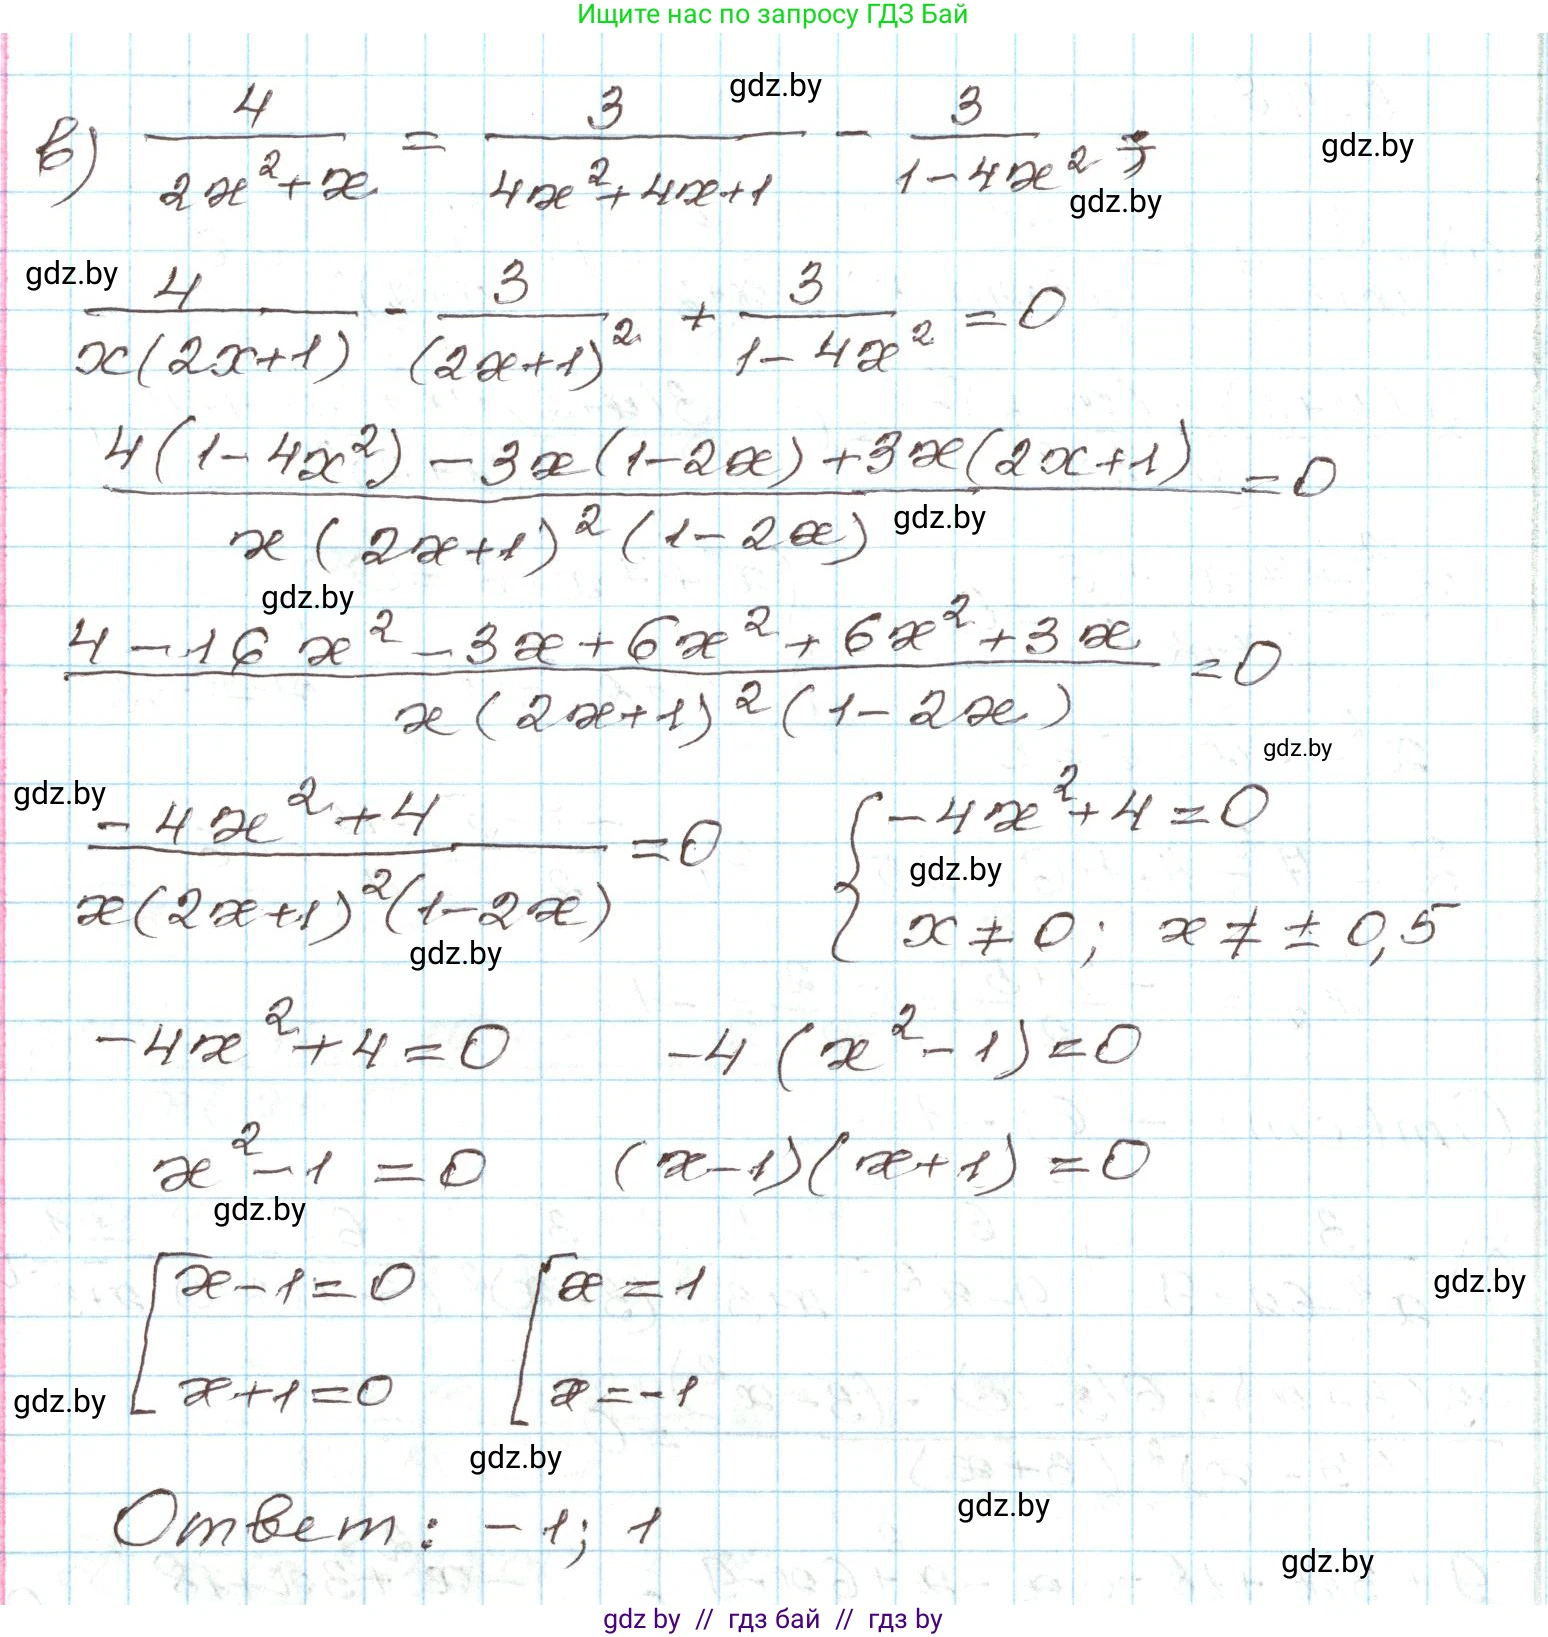 Ищите нас по запросу ГДЗ Бай
в) 4/(2x²+x) = 3/(4x²+4x+1) - 3/(1-4x²);
gdz.by
gdz.by
gdz.by
gdz.by
4/(x(2x+1)) - 3/(2x+1)² + 3/(1-4x²) = 0
(4(1-4x²) - 3x(1-2x) + 3x(2x+1))/(x(2x+1)²(1-2x)) = 0
gdz.by
gdz.by
(4-16x²-3x+6x²+6x²+3x)/(x(2x+1)²(1-2x)) = 0
gdz.by
gdz.by
(-4x²+4)/(x(2x+1)²(1-2x)) = 0 { -4x²+4=0
gdz.by
x≠0; x≠±0,5
gdz.by
-4x²+4=0 -4(x²-1)=0
x²-1=0 (x-1)(x+1)=0
gdz.by
[ x-1=0 [ x=1
gdz.by
x+1=0 x=-1
gdz.by
gdz.by
Ответ: -1; 1
gdz.by
gdz.by
gdz by // гдз бай // гдз by